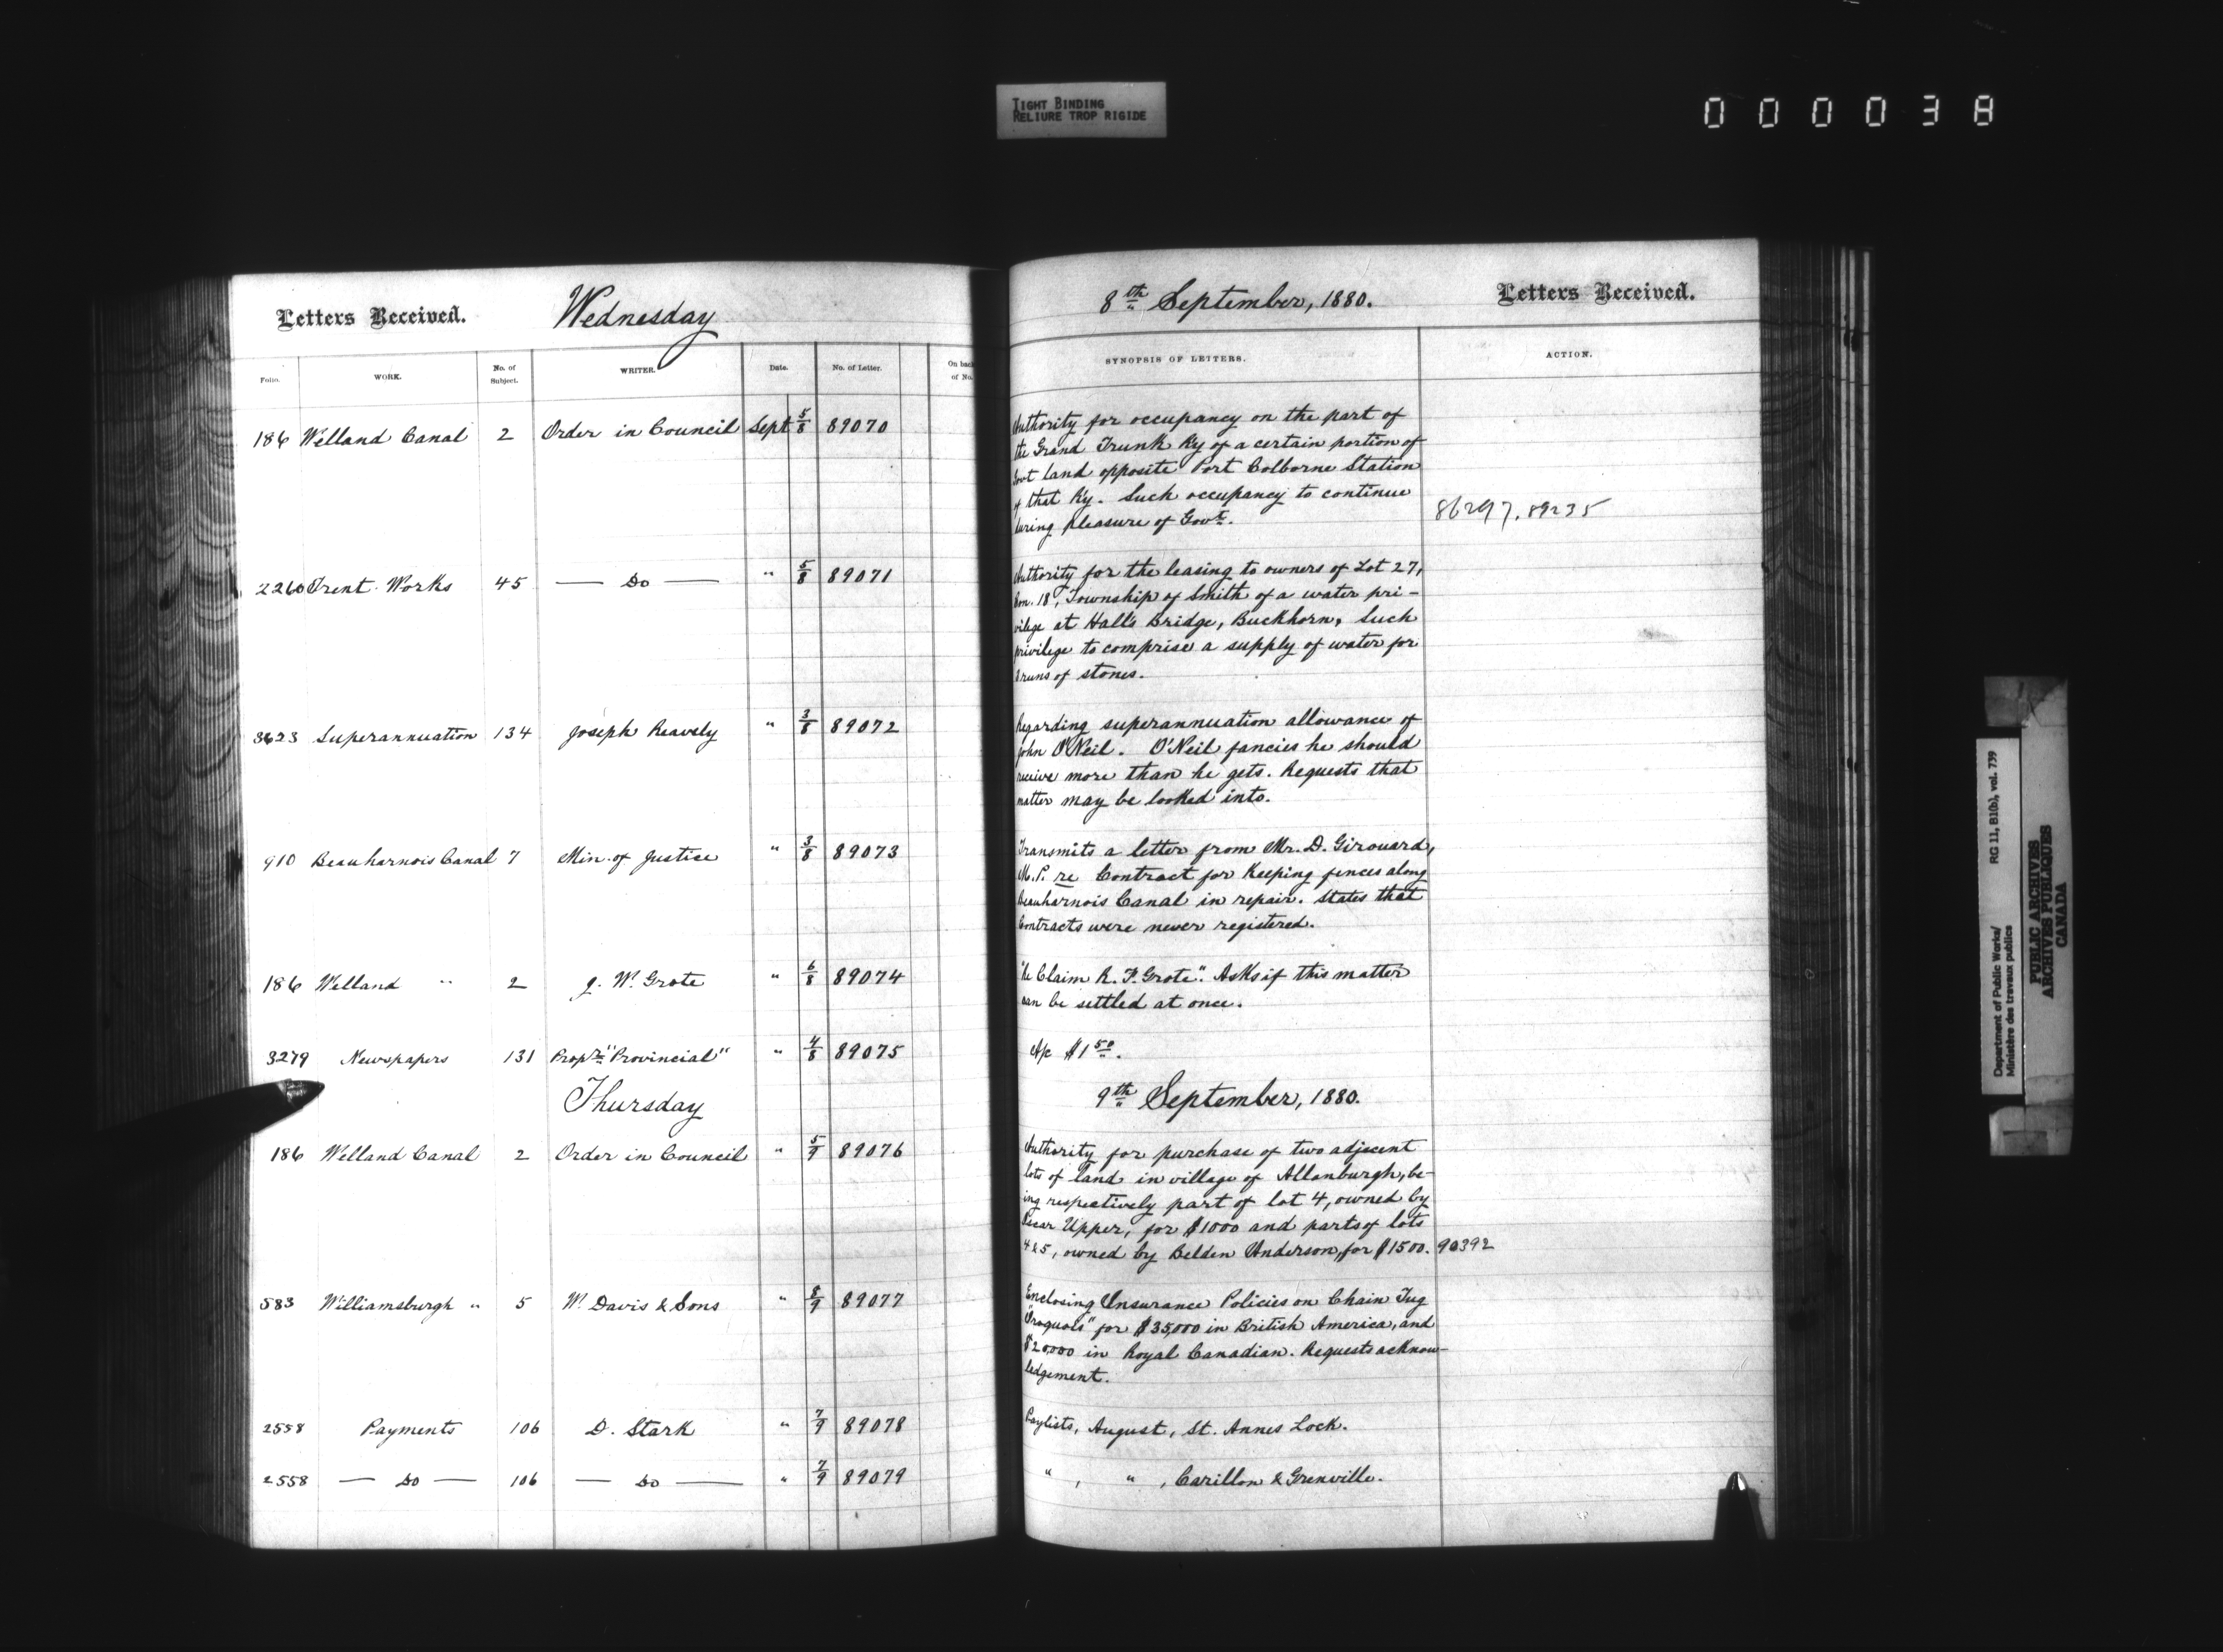 TIGHT BINDING
RELIURE TROP RIGIDE
000038
Letters Received. Wednesday
Folio. WORK. No. of Subject. WRITER. Date. No. of Letter. On back of No.
186 Welland Canal 2 Order in Council Sept 5/8 89070
2260 Trent Works 45 — Do — " 5/8 89071
3623 Superannuation 134 Joseph Reavely " 3/8 89072
910 Beauharnois Canal 7 Min. of Justice " 3/8 89073
186 Welland " 2 J. W. Grote " 6/8 89074
3279 Newspapers 131 Propr "Provincial" " 4/8 89075
Thursday
186 Welland Canal 2 Order in Council " 5/9 89076
583 Williamsburgh " 5 W. Davis & Sons " 8/9 89077
2558 Payments 106 D. Stark " 7/9 89078
2558 — Do — 106 — Do — " 7/9 89079
8th September, 1880. Letters Received.
SYNOPSIS OF LETTERS. ACTION.
Authority for occupancy on the part of
the Grand Trunk Ry of a certain portion of
Govt land opposite Port Colborne Station
of that Ry. Such occupancy to continue
during pleasure of Govt. 86297, 89235
Authority for the leasing to owners of Lot 27,
Con. 18, Township of Smith of a water pri-
vilege at Hall's Bridge, Buckhorn, Such
privilege to comprise a supply of water for
runs of stones.
Regarding superannuation allowance of
John O'Neil. O'Neil fancies he should
receive more than he gets. Requests that
matter may be looked into.
Transmits a letter from Mr. D. Girouard,
M.P. re Contract for Keeping fences along
Beauharnois Canal in repair. States that
Contracts were never registered.
"Re Claim R. F. Grote". Asks if this matter
can be settled at once.
A/c $1.50.
9th September, 1880.
Authority for purchase of two adjacent
lots of land in village of Allanburgh, be-
ing respectively part of lot 4, owned by
Oscar Upper, for $1000 and parts of lots
4 & 5, owned by Belden Anderson, for $1500. 90392
Enclosing Insurance Policies on Chain Tug
"Iroquois" for $35,000 in British America, and
$20,000 in Royal Canadian. Requests acknow-
ledgement.
Paylists, August, St. Annes Lock.
" , " , Carillon & Grenville.
Department of Public Works/ RG 11, B1(b), vol. 739
Ministère des travaux publics
PUBLIC ARCHIVES
ARCHIVES PUBLIQUES
CANADA